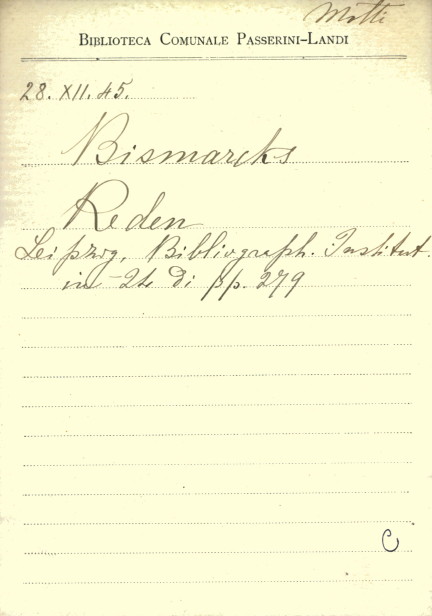 Motti
BIBLIOTECA COMUNALE PASSERINI-LANDI
28. XII. 45.
Bismarcks
Reden
Leipzig, Bibliograph. Institut.
in-24 di pp. 279
C